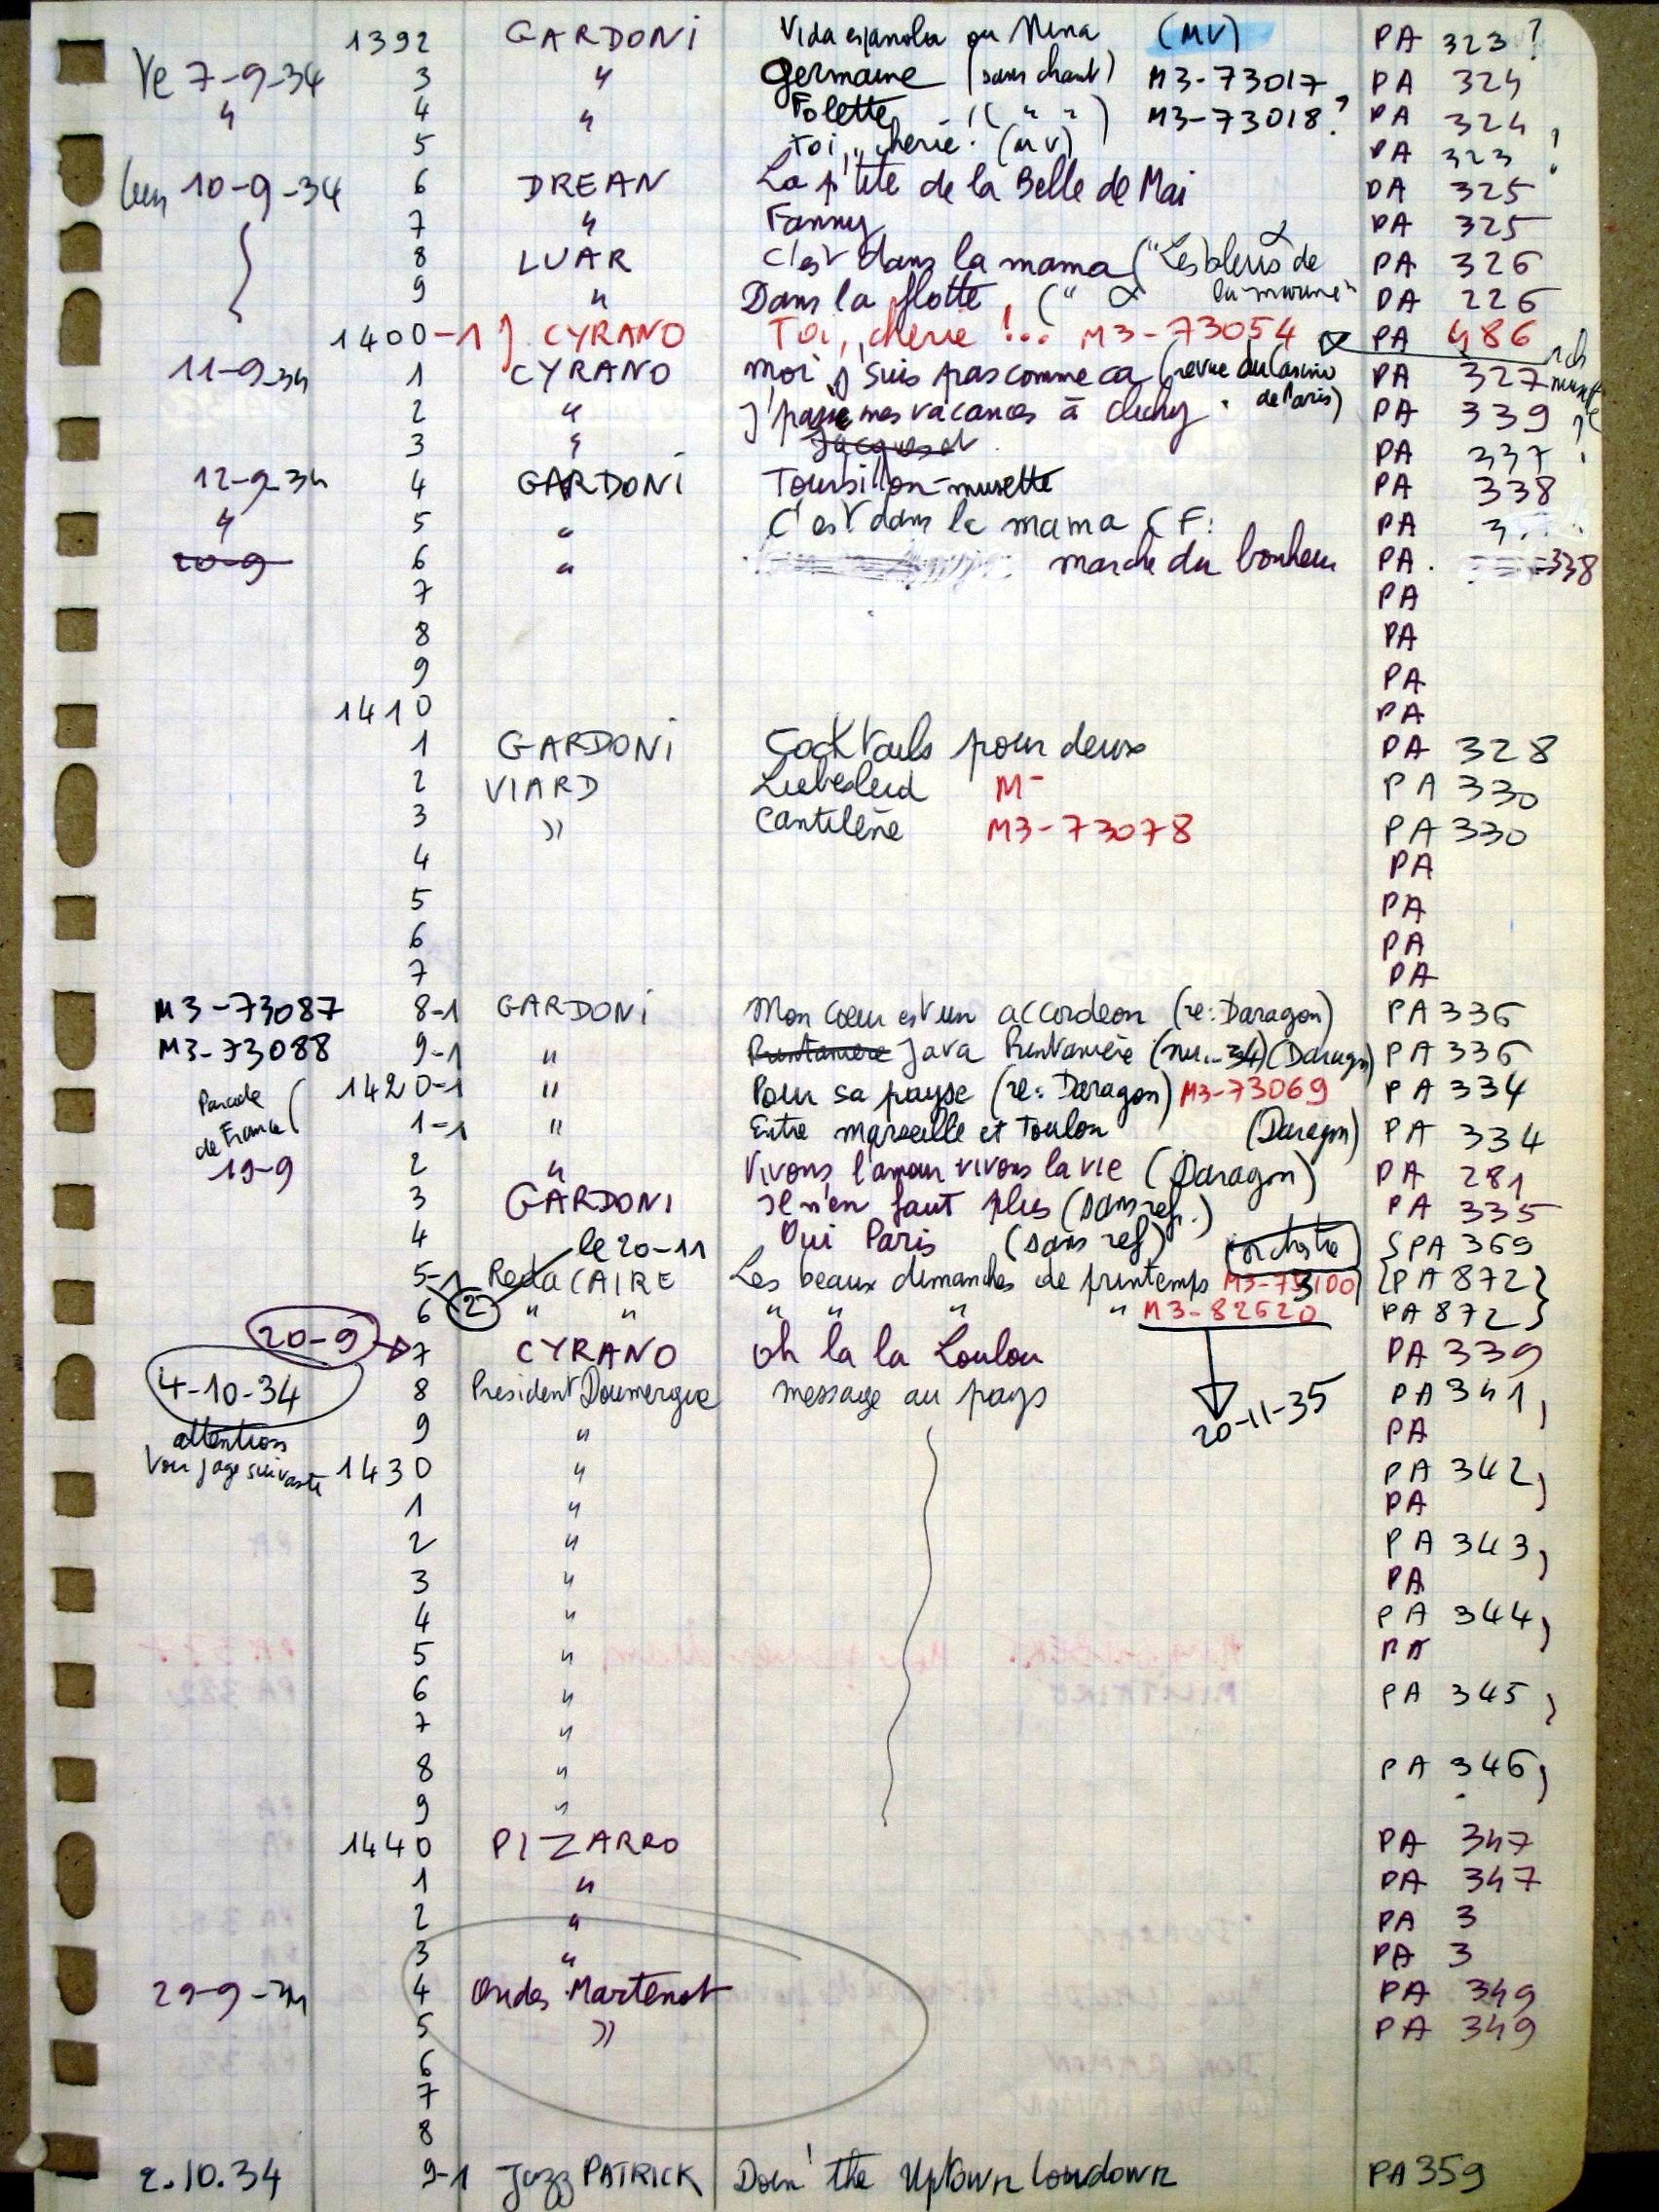 1392 GARDONI Vida española ou Nena (MV) PA 323?
Ve 7-9-34 3 " Germaine (sans chant) M3-73017 PA 324
" 4 " Folette ( " " ) M3-73018? PA 324
5 Toi, chérie! (MV) PA 323 ?
lun 10-9-34 6 DREAN La p'tite de la Belle de Mai PA 325
7 " Fanny PA 325
8 LUAR C'est dans la mama ("Les bleus de PA 326
la marine"
9 " Dans la flotte (" PA 226
1400-1 CYRANO Toi, chérie !... M3-73054 PA 486
11-9-34 1 CYRANO Moi j'suis pas comme ça (revue du Casino PA 327
de Paris)
2 " J'passe mes vacances à Clichy. PA 339
3 " PA 337 ?
12-9-34 4 GARDONI Tourbillon-musette PA 338
" 5 " C'est dans la mama CF: PA 3
20-9 6 " marche du bonheur PA. 338
7 PA
8 PA
9 PA
1410 PA
1 GARDONI Cocktails pour deux PA 328
2 VIARD Liebesleid M- PA 330
3 " Cantilène M3-73078 PA 330
4 PA
5 PA
6 PA
7 PA
M3-73087 8-1 GARDONI Mon coeur est un accordeon (re: Daragon) PA 336
M3-73088 9-1 " Printanière Java Printanière (Daragon) PA 336
Parade de France
1420-1 " Pour sa payse (re: Daragon) M3-73069 PA 334
1-1 " Entre Marseille et Toulon (Daragon) PA 334
19-9 2 " Vivons l'amour vivons la vie (Daragon) PA 281
3 GARDONI Il n'en faut plus (sans ref.) PA 335
4 Oui Paris (sans ref) PA 369
le 20-11 orchestre
5-1 Reda CAIRE Les beaux dimanches de printemps M3-73100 PA 872
6 2 " " " " " " M3-82620 PA 872
20-9 7 CYRANO Oh la la Loulou PA 339
4-10-34 8 President Doumergue message au pays PA 341,
20-11-35
attention
Voir page suivante
9 " PA
1430 " PA 342,
1 " PA
2 " PA 343,
3 " PA
4 " PA 344,
5 " PA
6 " PA 345,
7 "
8 " PA 346,
9 "
1440 PIZARRO PA 347
1 " PA 347
2 " PA 3
3 " PA 3
29-9-34 4 Ondes Martenot PA 349
5 " PA 349
6
7
8
2.10.34 9-1 Jazz PATRICK Doin' the Uptown Lowdown PA 359